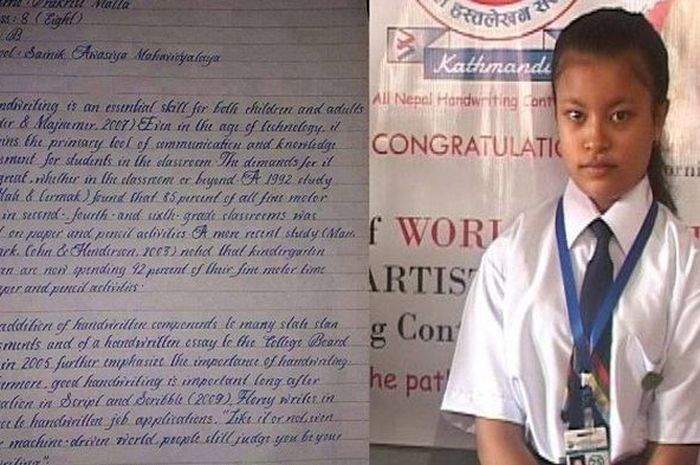 Prakriti Malla
ss: 8 (Eight)
: B
ool: Sainik Awasiya Mahavidyalaya
ndwriting is an essential skill for both children and adults
der & Majnemer, 2007) Even in the age of technology, it
ins the primary tool of communication and knowledge
sment for students in the classroom The demands for it
great, whether in the classroom or beyond A 1992 study
Hale & Cermak) found that 85 percent of all fine motor
in second-, fourth- and sixth- grade classrooms was
on paper and pencil activities A more recent study (Marr,
ark, Cohn & Henderson, 2003) noted that kindergarten
en are now spending 42 percent of their fine motor time
aper and pencil activities.
addition of handwritten components to many state stan
ssments and of a handwritten essay to the College Board
in 2005 further emphasize the importance of handwriting.
ermore, good handwriting is important long after
ation in Script and Scribble (2009), Florey writes in
nce to handwritten job applications, "Like it or not, even
machine-driven world, people still judge you by your
riting."
हस्तलेखन
Kathmandu
All Nepal Handwriting Cont
CONGRATULATI
f WORL
ARTIST
g Con
he pat